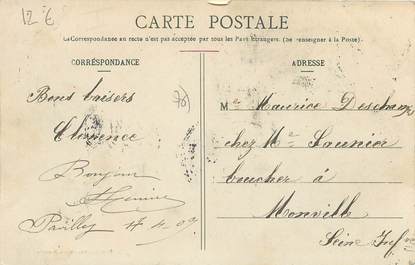 12 €
CARTE POSTALE
La Correspondance au recto n'est pas acceptée par tous les Pays Etrangers. (Se renseigner à la Poste).
CORRÉSPONDANCE
Bons baisers
Clémence
Bonjour
Pavilly 17 4 09
ADRESSE
Mr Maurice Deschamps
chez Mr Saunier
boucher à
Monville
Seine Infre